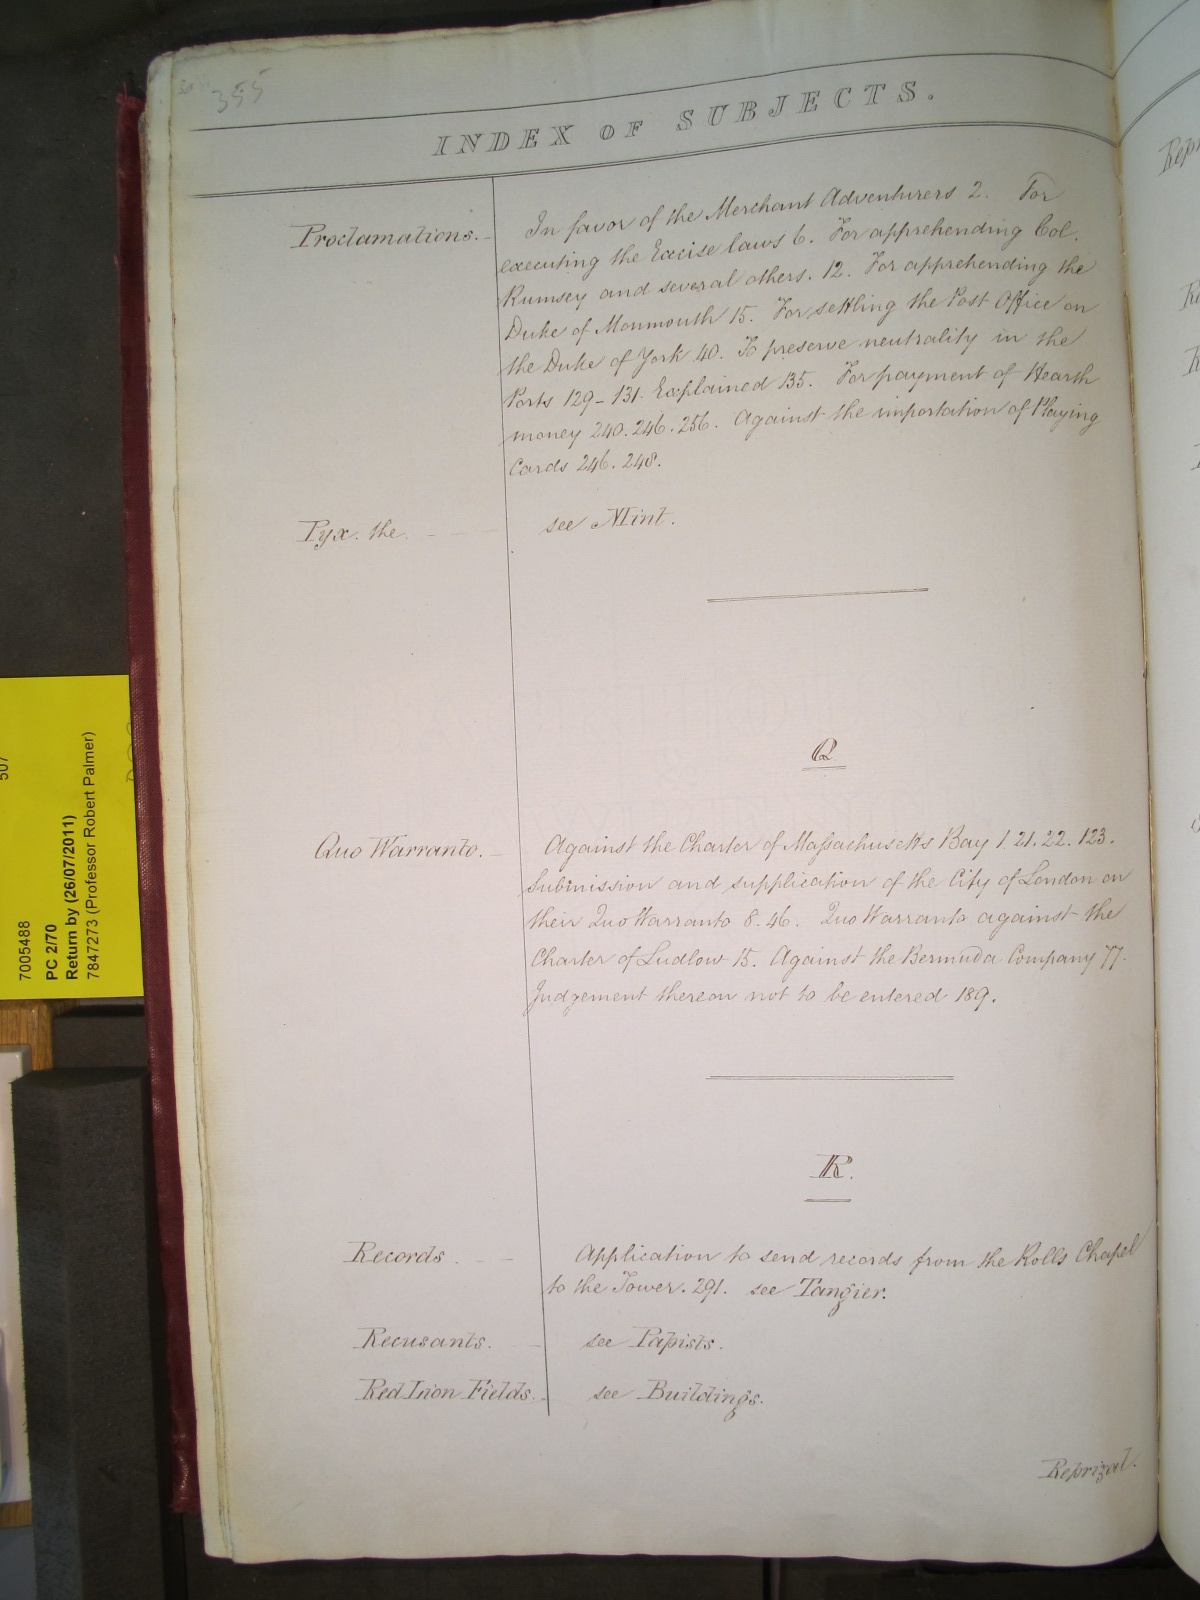 355
INDEX OF SUBJECTS.
Proclamations. In favor of the Merchant Adventurers 2. For
executing the Excise laws 6. For apprehending Col.
Rumsey and several others. 12. For apprehending the
Duke of Monmouth 15. For settling the Post Office on
the Duke of York 40. To preserve neutrality in the
Ports 129-131. Explained 135. For payment of Hearth
money 240. 246. 256. Against the importation of Playing
Cards 246. 248.
Pyx. the. see Mint.
Q
Quo Warranto. Against the Charter of Massachusetts Bay 1. 21. 22. 123.
Submission and supplication of the City of London on
their Quo Warranto 8. 46. Quo Warranto against the
Charter of Ludlow 15. Against the Bermuda Company 77.
Judgement thereon not to be entered 189.
R.
Records. Application to send records from the Rolls Chapel
to the Tower. 291. see Tangier.
Recusants. see Papists.
Red Lion Fields. see Buildings.
Reprizal.
507
7005488
PC 2/70
Return by (26/07/2011)
7847273 (Professor Robert Palmer)